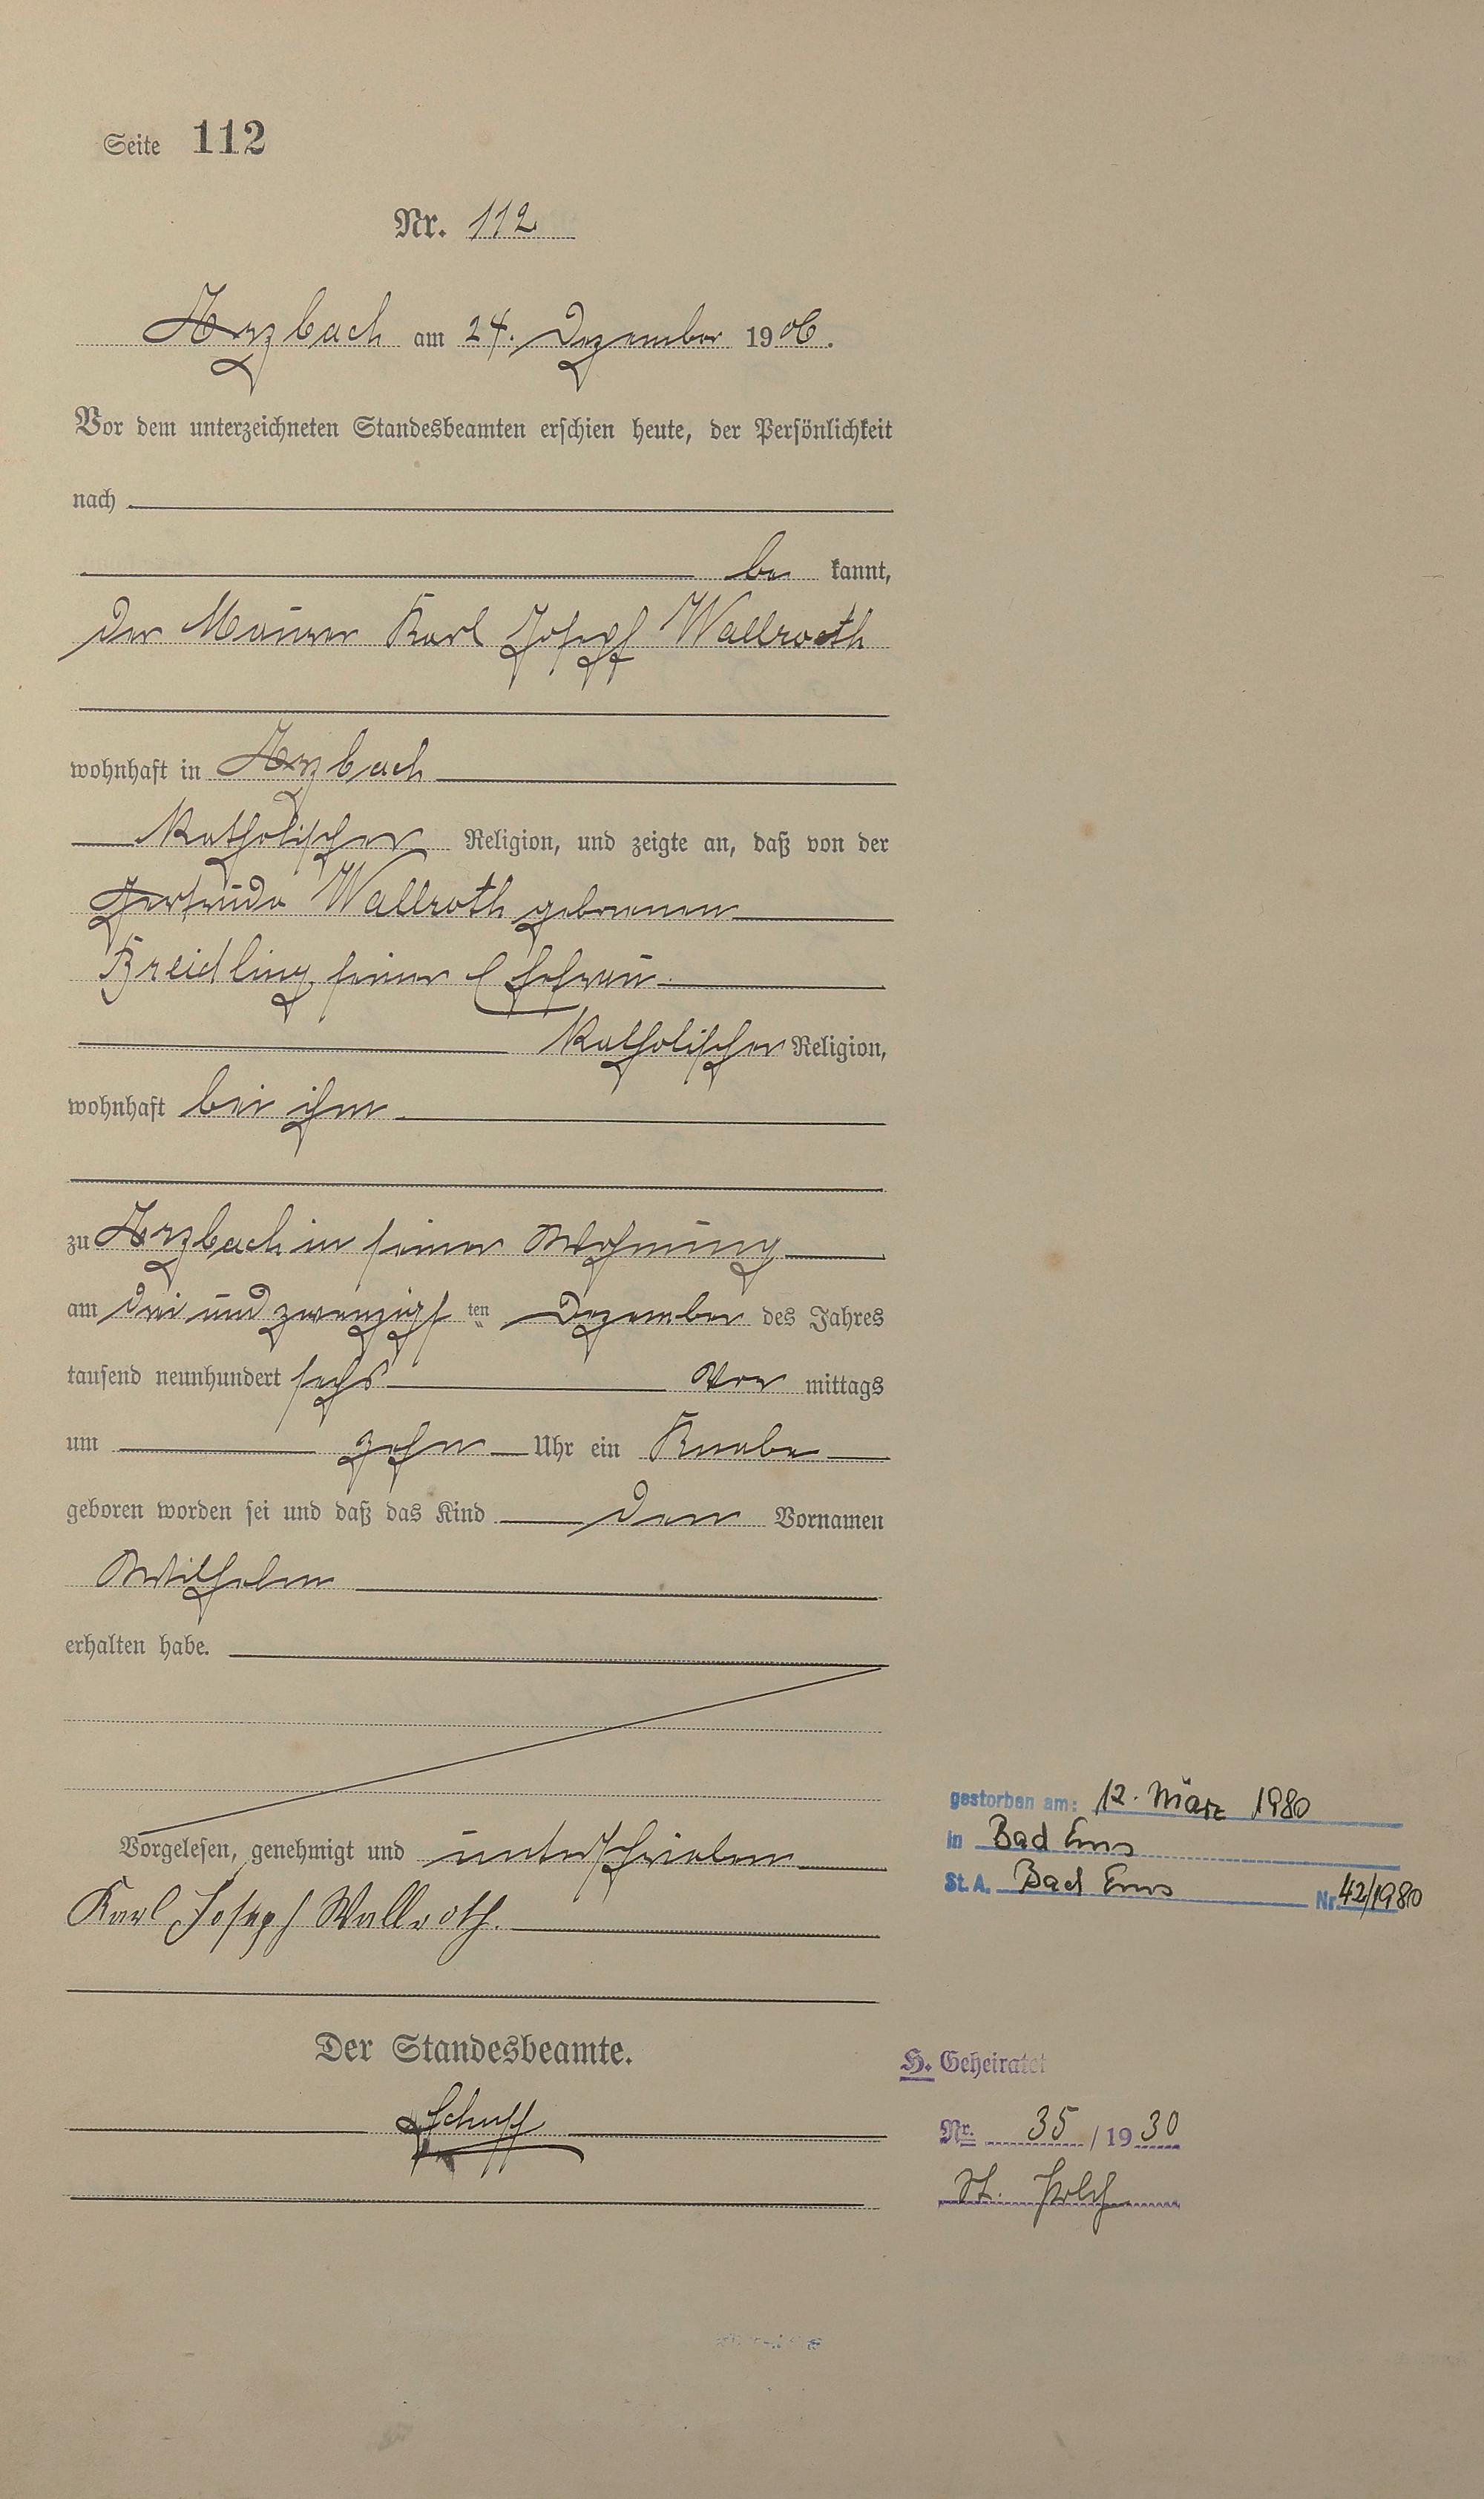 Seite 112
Nr. 112
Arzbach am 24. Dezember 1906.
Vor dem unterzeichneten Standesbeamten erschien heute, der Persönlichkeit
nach
be kannt,
der Maurer Karl Josef Wallroth
wohnhaft in Arzbach
katholischer Religion, und zeigte an, daß von der
Gertrude Wallroth geborenen
Breidling seiner Ehefrau
katholischer Religion,
wohnhaft bei ihm
zu Arzbach in seiner Wohnung
am drei und zwanzigs ten Dezember des Jahres
tausend neunhundert sechs vor mittags
um zehn Uhr ein Knabe
geboren worden sei und daß das Kind den Vornamen
Wilhelm
erhalten habe.
Vorgelesen, genehmigt und unterschrieben
Karl Joseph Wallroth.
Der Standesbeamte.
Schuff
gestorben am: 12. März 1980
in Bad Ems
St. A. Bad Ems Nr. 42/1980
H. Geheiratet
Nr. 35 / 19 30
St.